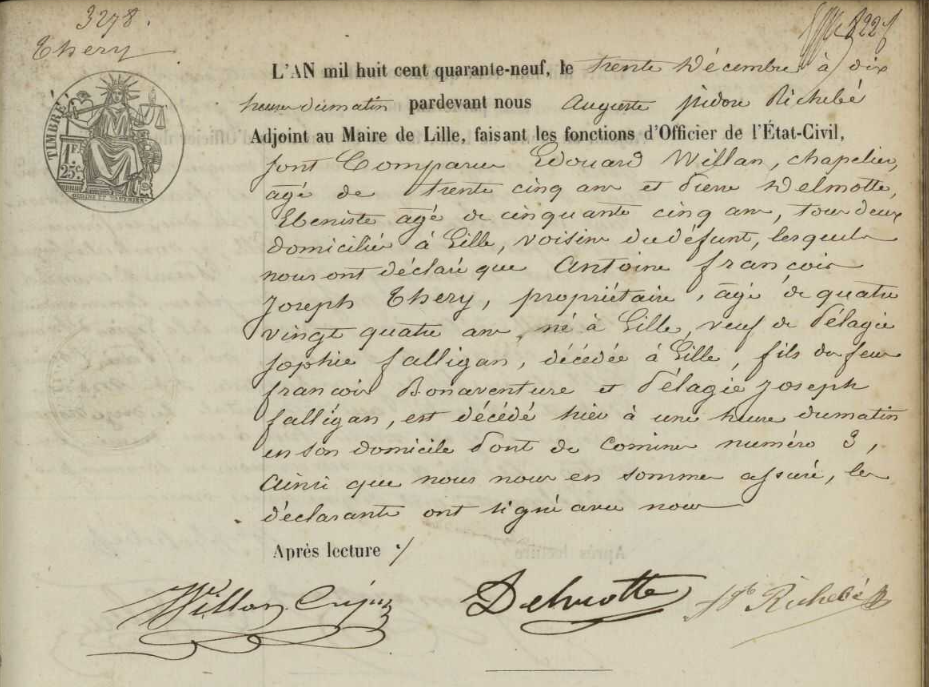 3278.
Thery
TIMBRE
1F.
25c.
L'AN mil huit cent quarante-neuf, le trente Décembre à dix
heures du matin pardevant nous Auguste isidore Richebé
Adjoint au Maire de Lille, faisant les fonctions d'Officier de l'État-Civil,
sont Comparus Edouard Willan, chapelier,
âgé de trente cinq ans et Pierre Delmotte,
Ebeniste âgé de cinquante cinq ans, tous deux
domiciliés à Lille, voisins du défunt, lesquels
nous ont déclaré que Antoine françois
Joseph Thery, propriétaire, âgé de quatre
vingt quatre ans, né à Lille, veuf de Pélagie
Sophie falligan, décédée à Lille, fils de feu
françois Bonaventure et Pélagie Joseph
falligan, est décédé hier à une heure du matin
en son domicile Pont de Comines numéro 3,
Ainsi que nous nous en sommes assuré, les
déclarants ont signé avec nous
Après lecture ./
Willan Delmotte Richebé